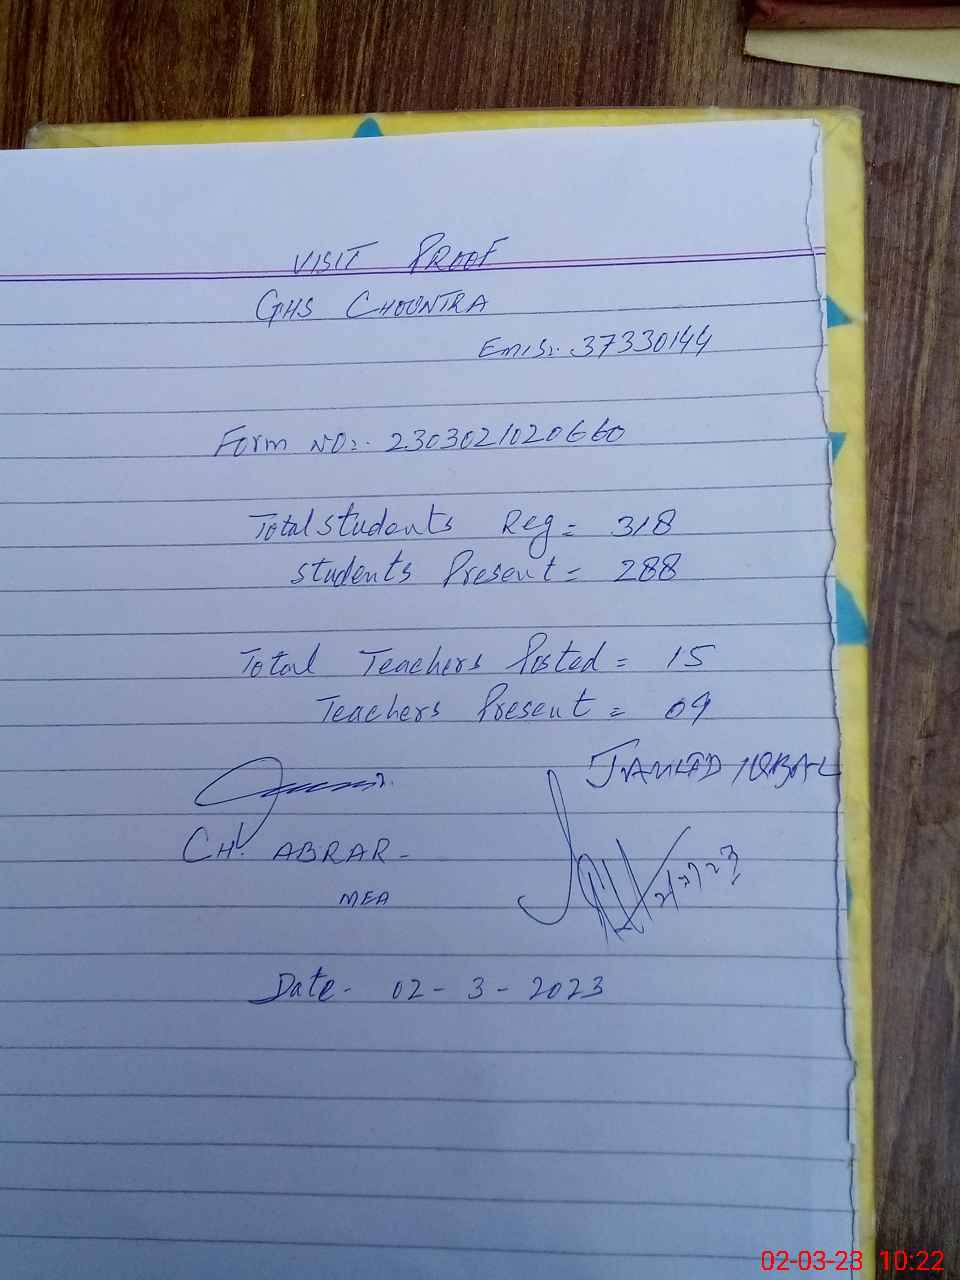 VISIT PROOF
GHS CHOONTRA
Emis:. 37330144
Form NO:. 2303021020660
Total students Reg = 318
students Present = 288
Total Teachers Posted = 15
Teachers Present = 09
JAMED IQBAL
CH. ABRAR-
MEA
Date- 02-3-2023
02-03-23 10:22